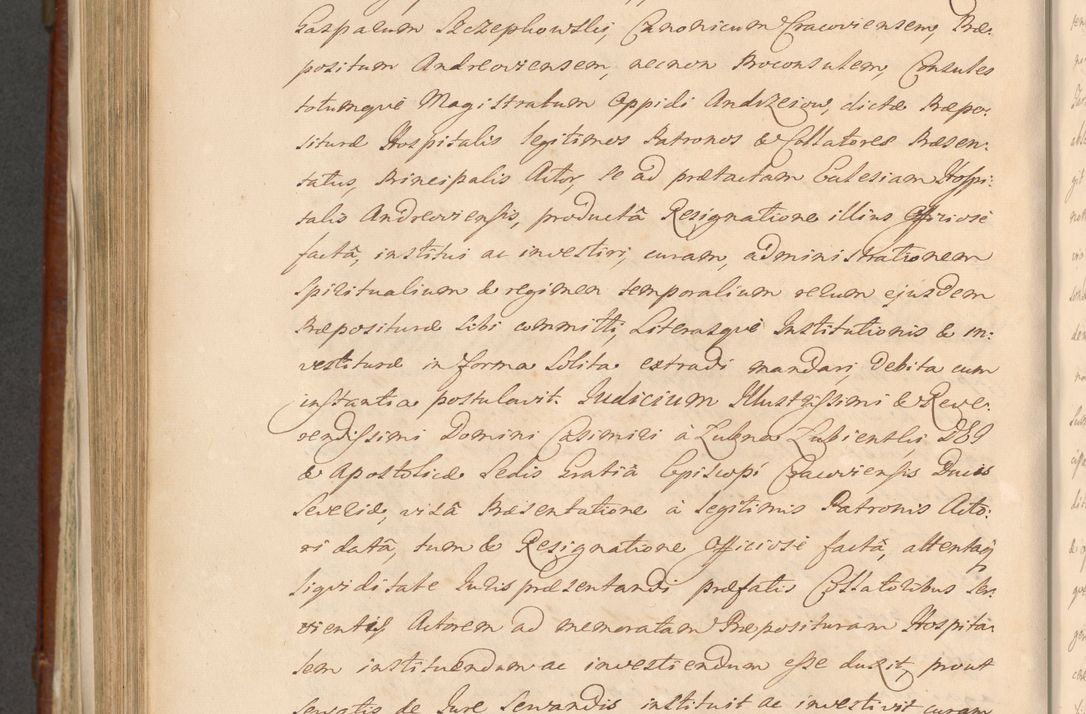 Gasparum Szczepkowski, Canonicum Cracoviensem, Præ:
positum Andreoviensem, necnon Proconsulem, Consules
totumquè Magistratum Oppidi Andrzeiow, dictæ Præpo:
situræ Hospitalis legitimos Patronos & Collatores Præsen:
tatus, Principalis Actor, se ad prætactam Ecclesiam Hospi:
talis Andreoviensis, productâ Resignatione illius Officiosè
factâ, institui ac investiri, curam, administrationem
spiritualium & regimen temporalium rerum ejusdem
Præposituræ sibi committi, Literasquè Institutionis & in:
vestituræ in forma solita extradi mandari, debita cum
instantia postulavit. Judicium Illustrissimi & Reve:
rendissimi Domini Casimiri à Łubna Łubienski, DEI
& Apostolicæ Sedis Gratiâ Episcopi Cracoviensis Ducis
Severiæ, visâ Præsentatione à legitimis Patronis Acto:
ri datâ, tum & Resignatione Officiosè factâ, attentaq
liquiditate Juris præsentandi præfatis Collatoribus ser:
vientis Actorem ad memoratam Præposituram Hospita:
lem instituendum ac investiendum esse duxit, prout
servatis de Jure servandis instituit ac investivit curam